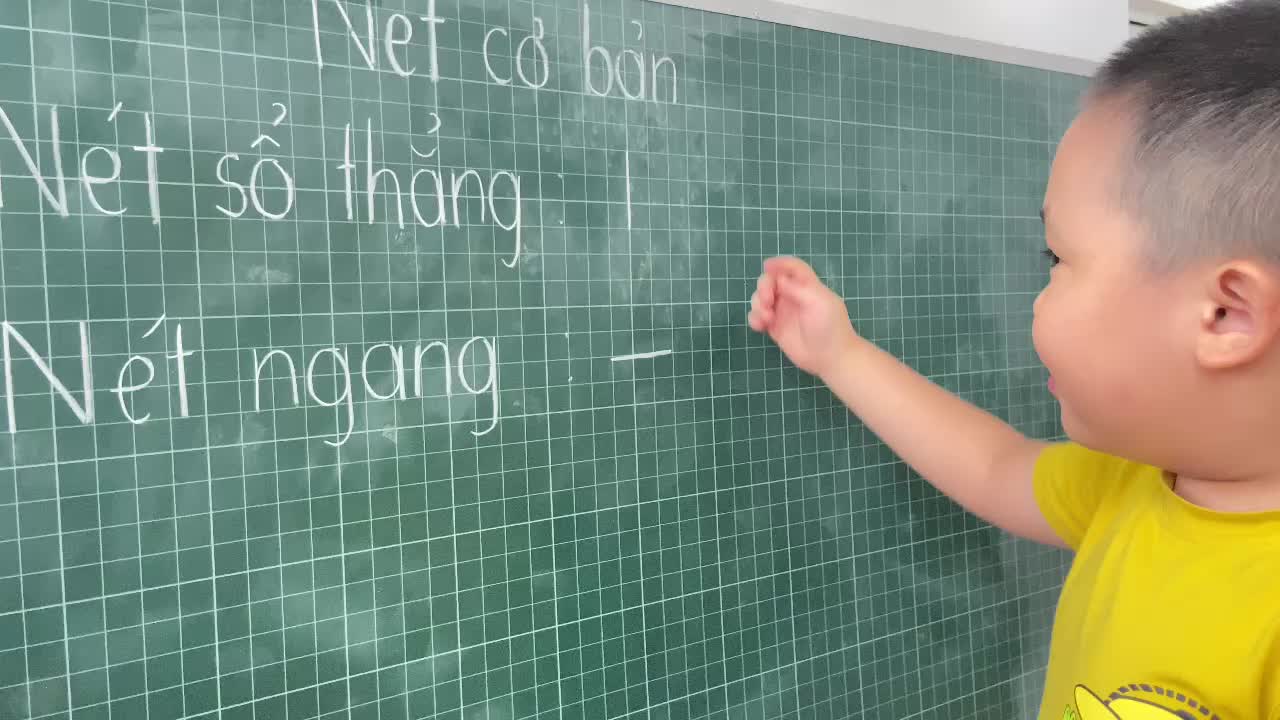 Nét cơ bản
Nét sổ thẳng : |
Nét ngang : —